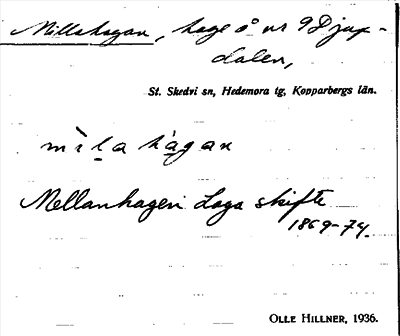 Millahagan, hage å nr 9 Djup-
dalen,
St. Skedvi sn, Hedemora tg, Kopparbergs län.
mìla hàgan
Mellanhagen Laga skifte
1869-74.
OLLE HILLNER, 1936.